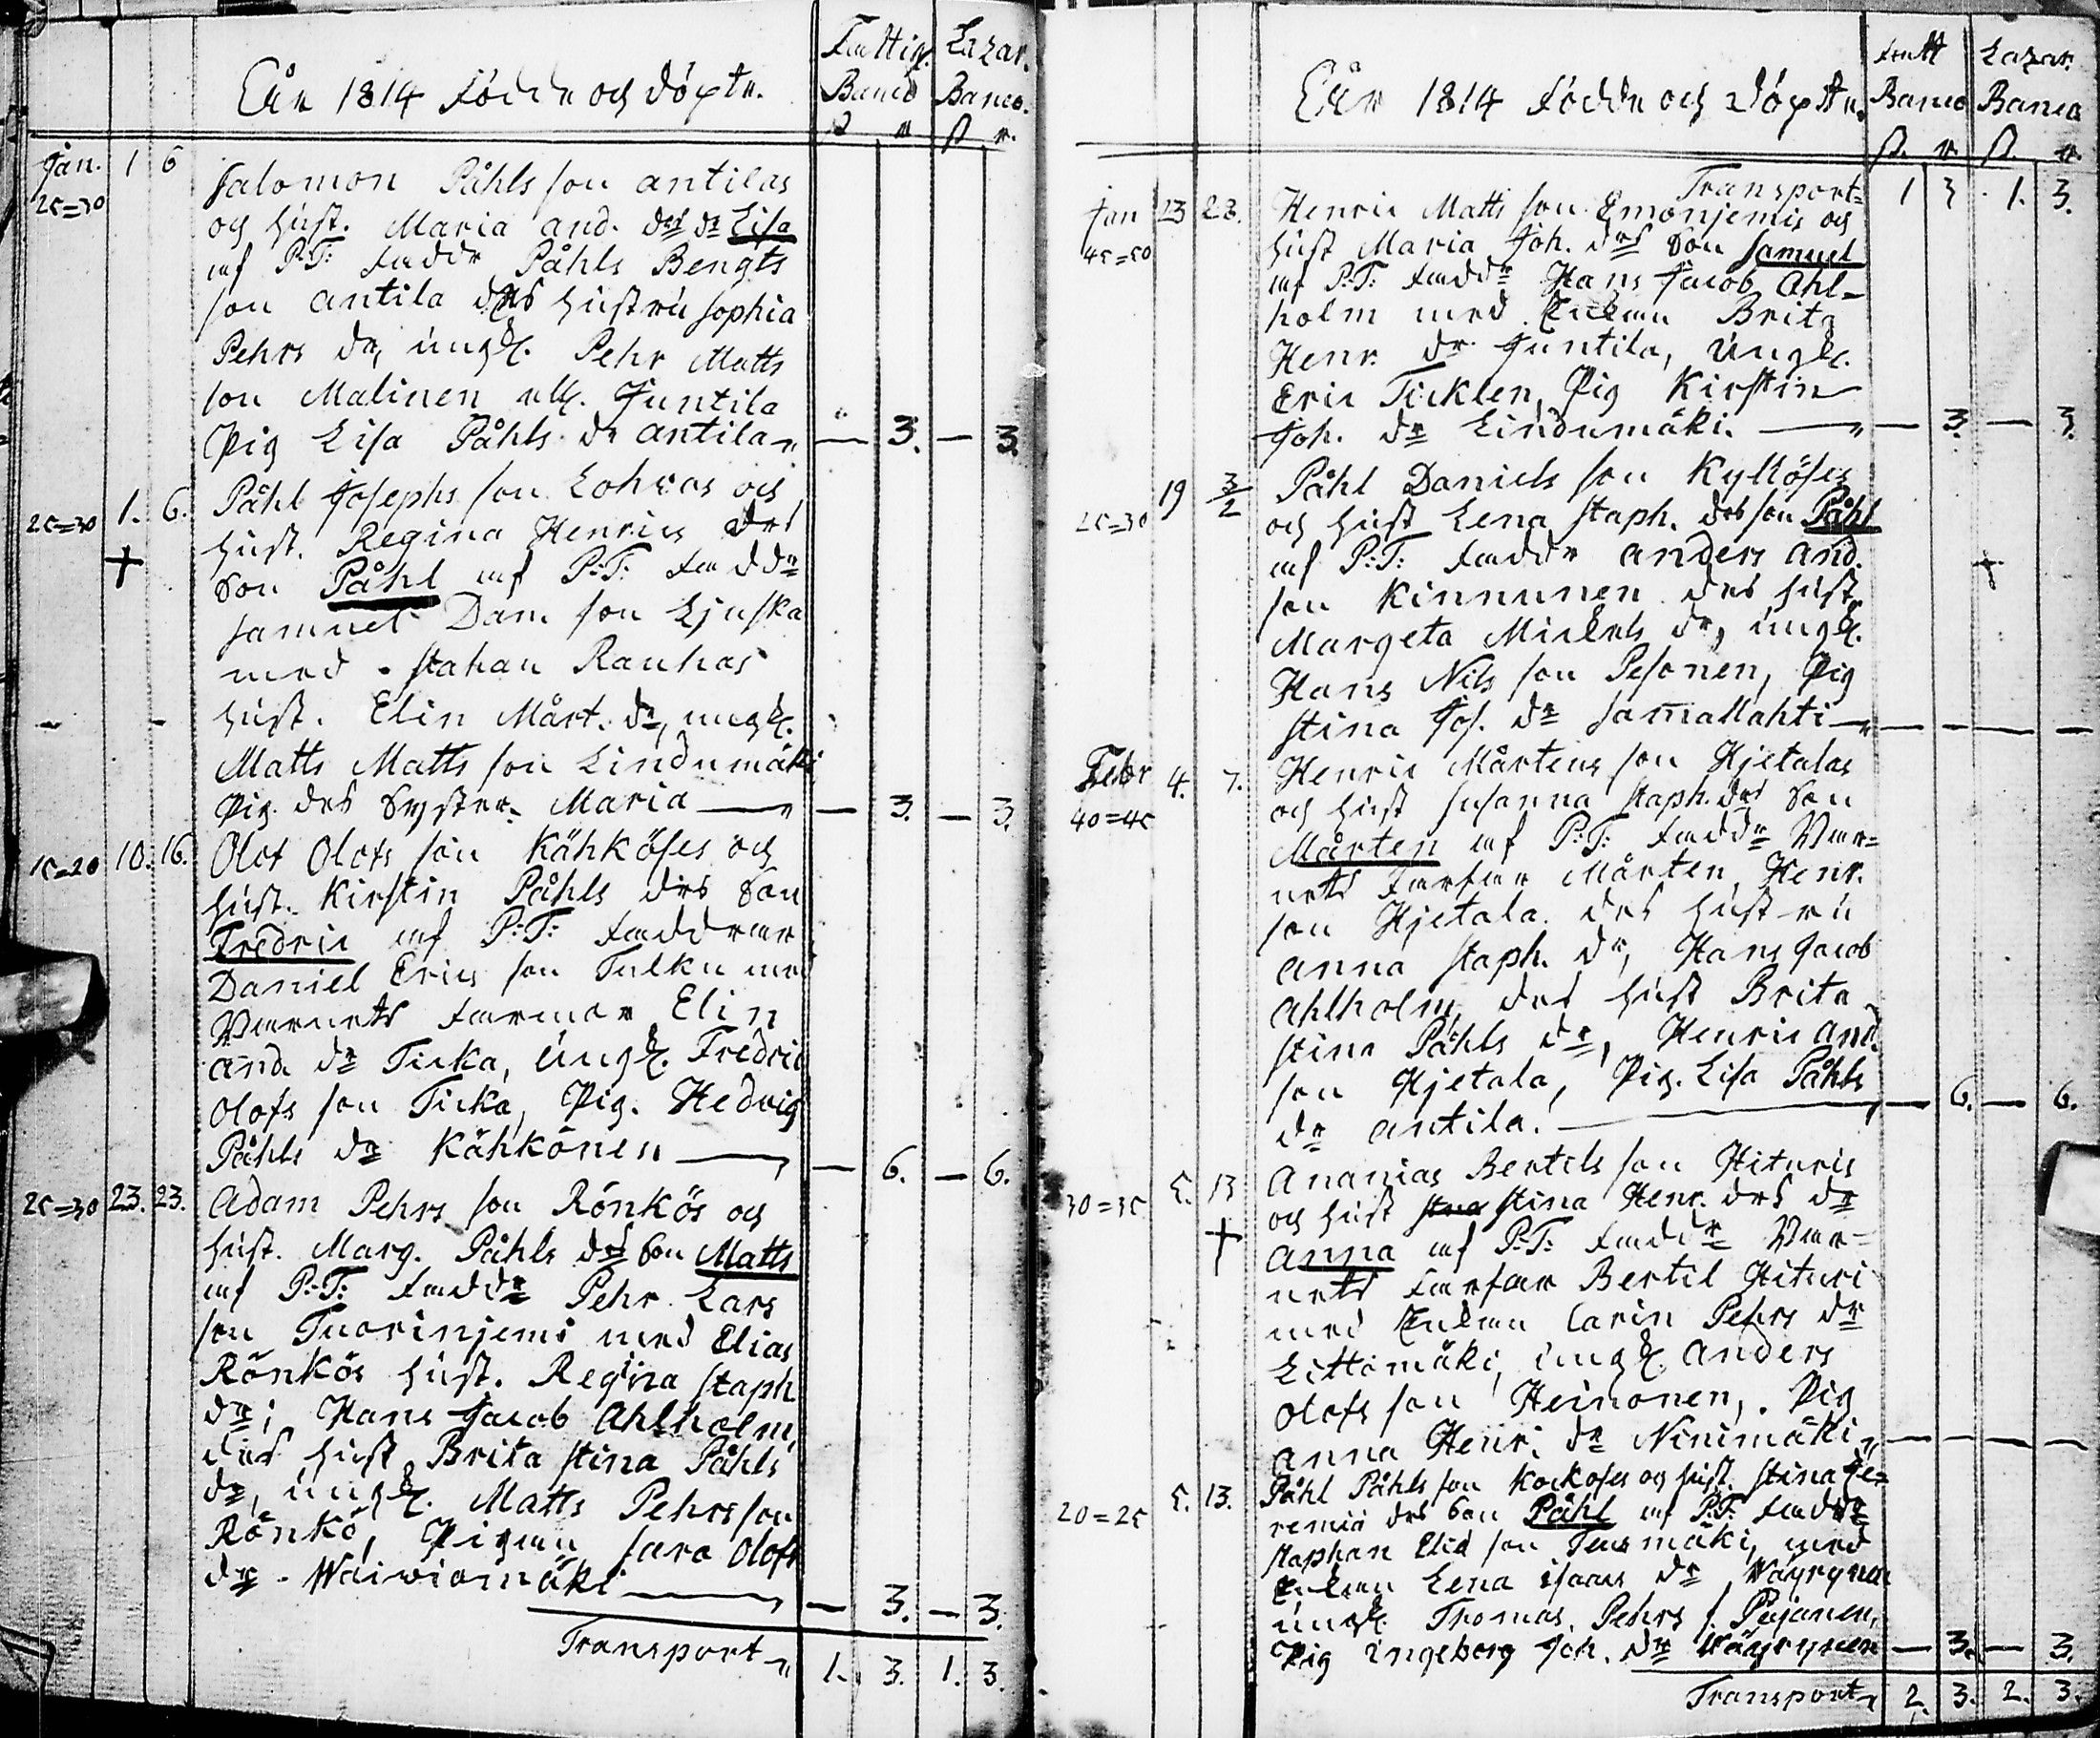 Åår 1814 Födde och döpte.
Fattig. Lazar.
Banco Banco.
Jan. 1 6 Salomon Påhls son Antilas
25=30 och hust. Maria And. dr dr Lisa
af P:T: Faddr Påhls Bengts
son Antila dess hustru Sophia
Pehrs dr, ungk. Pehr Matts
son Malinen ell. Juntila
Pig Lisa Påhls dr Antila — 3. — 3.
25=30 1. 6. Påhl Josephs son Lohvas och
hust. Regina Henrics drs
Son Påhl af P:T: Faddr
Samuel Dan. son Ljuska
med Stahan Rauhas
hust. Elin Mårt. dr, ungk.
Matts Matts son Lindumäki
Pig. des Syster Maria — 3. — 3.
15=20 10. 16. Olof Olofs son Kähköses och
hust. Kirstin Påhls drs Son
Fredric af P:T: Faddrar
Daniel Erics son Tulku med
Barnets Farmor Elin
And. dr Ticka, Ungk. Fredric
Olofs son Ticka, Pig. Hedvig
Påhls dr Kähkönen — 6. — 6.
25=30 23. 23. Adam Pehrs son Rönkös och
hust. Marg. Påhls drs Son Matts
af P:T: Faddr Pehr Lars
son Tuorinjemi med Elias
Rönkös hust. Regina Staph
dr; Hans Jacob Ahlholm,
des hust Brita Stina Påhls
dr, ungk. Matts Pehrs son
Rönkö, Pigan Sara Olofs
dr. Waiwiomäki — 3. — 3.
Transport 1. 3. 1. 3.
Åår 1814 Födde och döpte.
Fatt Lazar.
Banco Banco
Transport 1 3 1. 3.
Jan 23 23. Henric Matts son Emonjemis och
45=50 hust Maria Joh. drs Son Samuel
af P:T: Faddr Hans Jacob Ahl-
holm med Enkan Brita
Henr. dr Juntila, Ungk.
Eric Ticklen, Pig Kirstin
Joh. dr Lindumäki. — 3. — 3.
19 3/2 Påhl Daniels son Kyllöses
25=30 och hust Lena Staph. drs son Påhl
af P:T: Faddr Anders And.
son Kinnunen des hust
Margeta Mickels dr, ungk.
Hans Nils son Pesonen, Pig
Stina Jos. dr Samallahti — — — —
Febr 4. 7. Henric Mårtens son Hjetalas
40=45 och hust Susanna Staph. drs Son
Mårten af P:T: Faddr Bar=
nets Farfar Mårten Henr.
son Hjetala des hustru
Anna Staph. dr, Hans Jacob
Ahlholm, des hust Brita
Stina Påhls dr, Henric And.
son Hjetala, Pig. Lisa Påhls
dr Antila. — 6. — 6.
30=35 5. 13 Ananias Bertils son Hituris
och hust Stina Henr. drs dr
Anna af P:T: Faddr Bar=
nets Farfar Bertil Hituri
med Enkan Carin Pehrs dr
Littomäki, ungk. Anders
Olofs son Heinonen, Pig
Anna Henr. dr Ninimäki — — — —
20=25 5. 13. Påhl Påhls son Kockoses och hust. Stina Je=
remiæ drs Son Påhl af P:T: Faddr
Staphan Elia son Tensmäki, med
Enkan Lena Isaacs dr Wäyrynen
ungk. Thomas Pehrs s. Pejanen,
Pig Ingeborg Joh. dr Wäyrynen — 3. — 3.
Transport 2. 3. 2. 3.